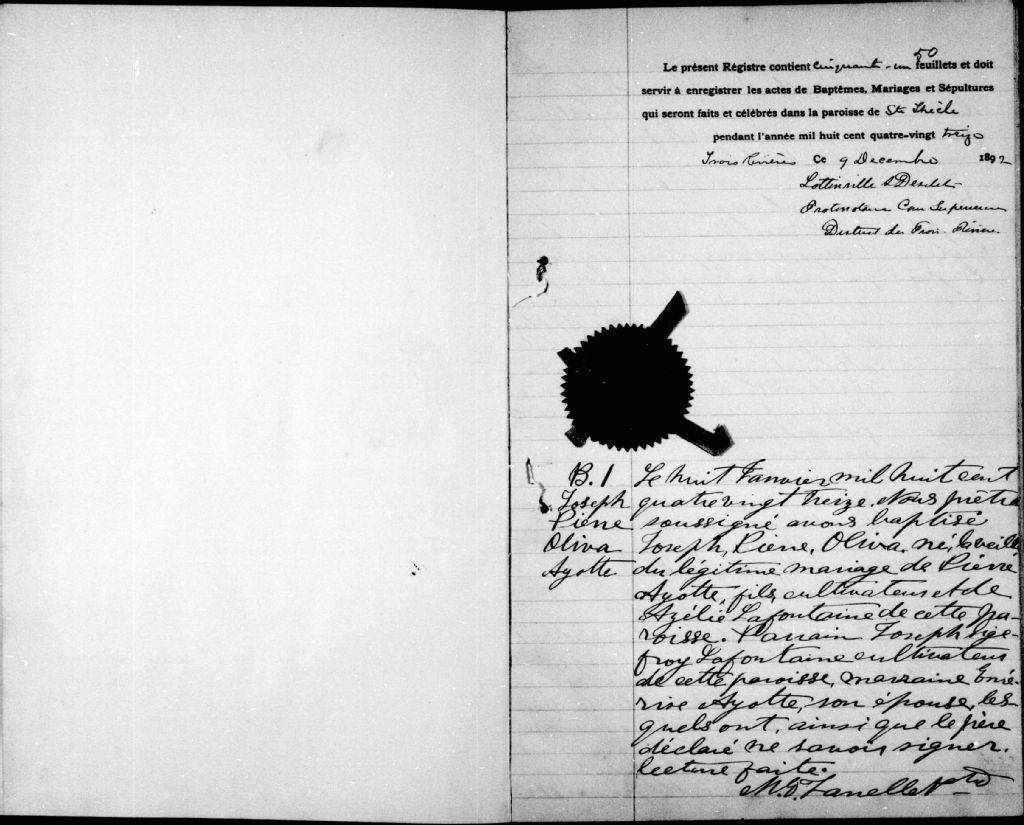 50
Le présent Régistre contient cinquante-un feuillets et doit
servir à enregistrer les actes de Baptêmes, Mariages et Sépultures
qui seront faits et célébrés dans la paroisse de Ste Thècle
pendant l'année mil huit cent quatre-vingt treize
Trois Rivières Ce 9 Decembre 1892
Lottinville & Desilet
Protonotaire Cour Superieure
District des Trois-Rivières
B. 1
Joseph
Pierre
Oliva
Ayotte
Le huit Janvier mil huit cent
quatre vingt treize. Nous prêtre
soussigné avons baptisé
Joseph, Pierre, Oliva, né, la veille
du légitime mariage de Pierre
Ayotte, fils, cultivateur et de
Azélie Lafontaine de cette pa-
roisse. Parrain Joseph Sige-
froy Lafontaine cultivateur
de cette paroisse, marraine Emé-
rise Ayotte, son épouse, les-
quels ont, ainsi que le père
déclaré ne savoir signer.
lecture faite.